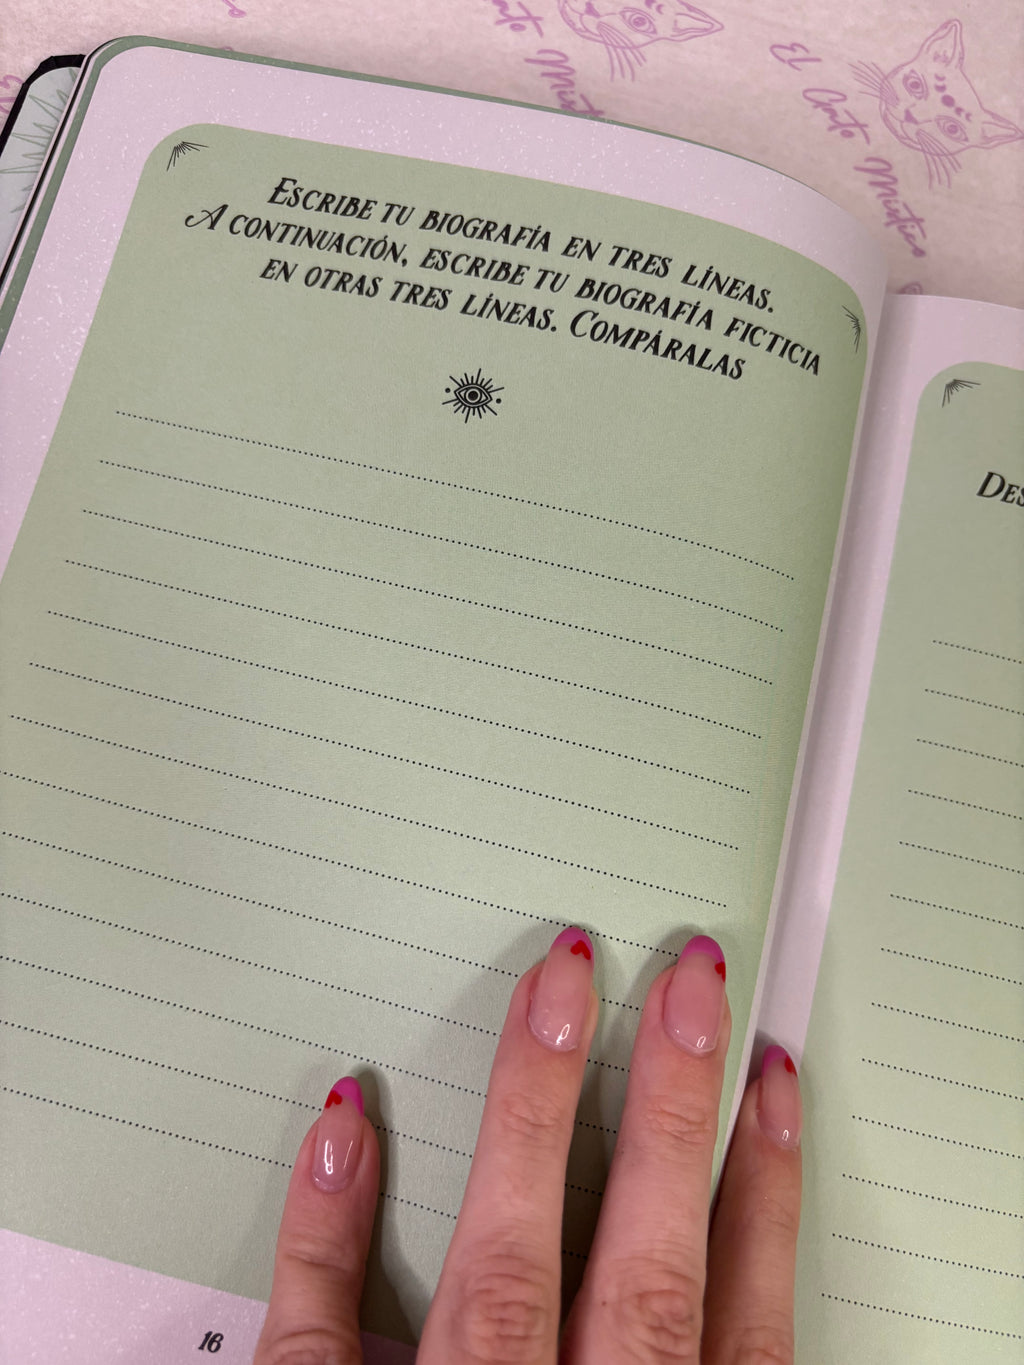 El
Gato
Místico
Gato
Místico
Escribe tu biografía en tres líneas.
A continuación, escribe tu biografía ficticia
en otras tres líneas. Compáralas
16